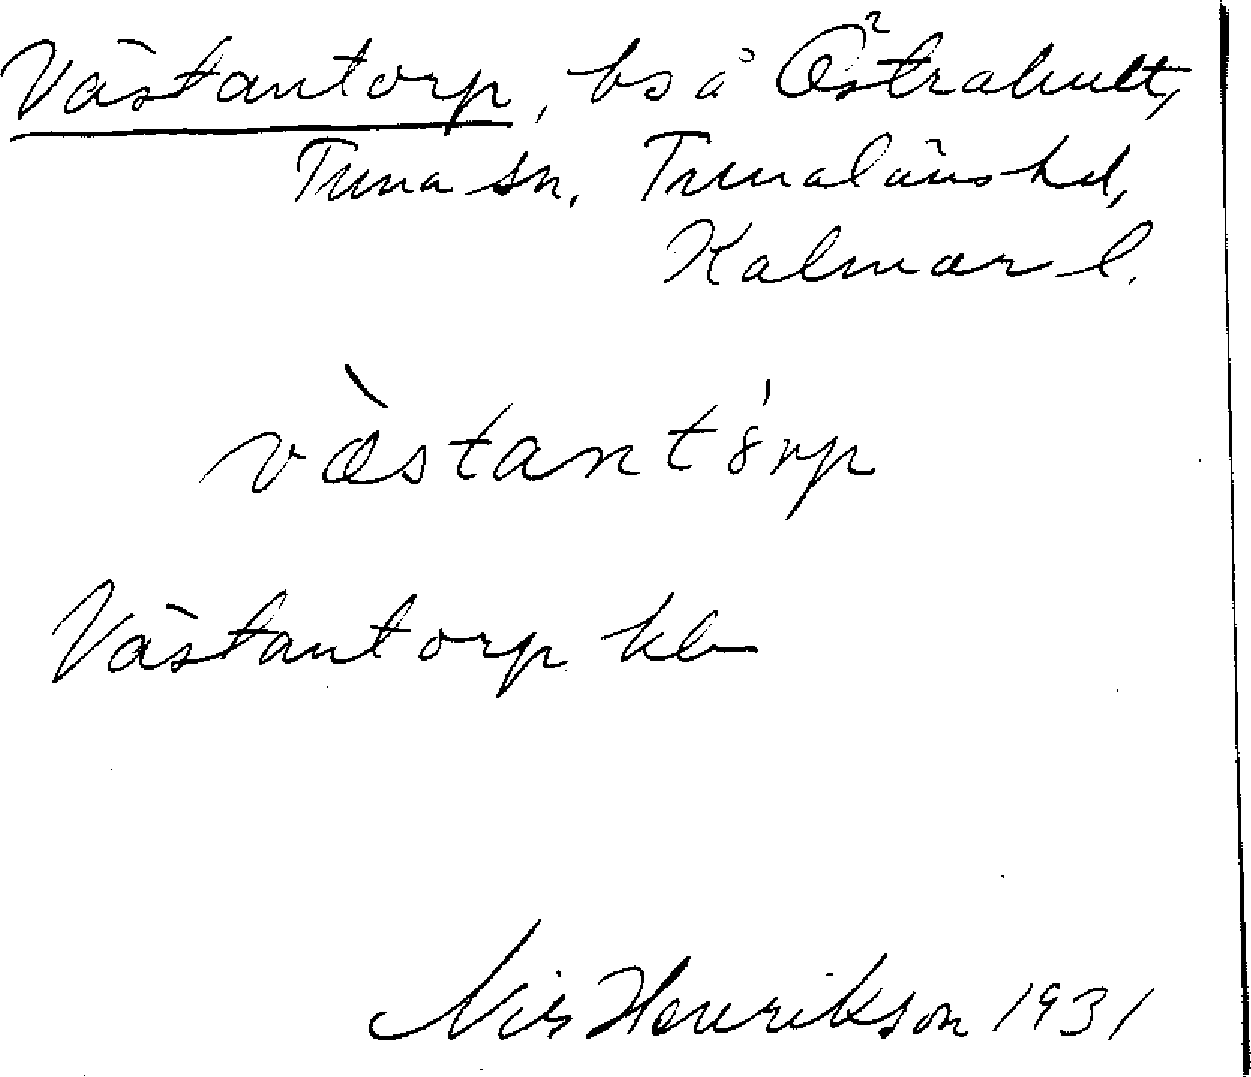 Västantorp, bs å Östrahult,
Tuna sn, Tunaläns hd,
Kalmar l.
væ̀stantórp
Västantorp kb
Nils Henrikson 1931